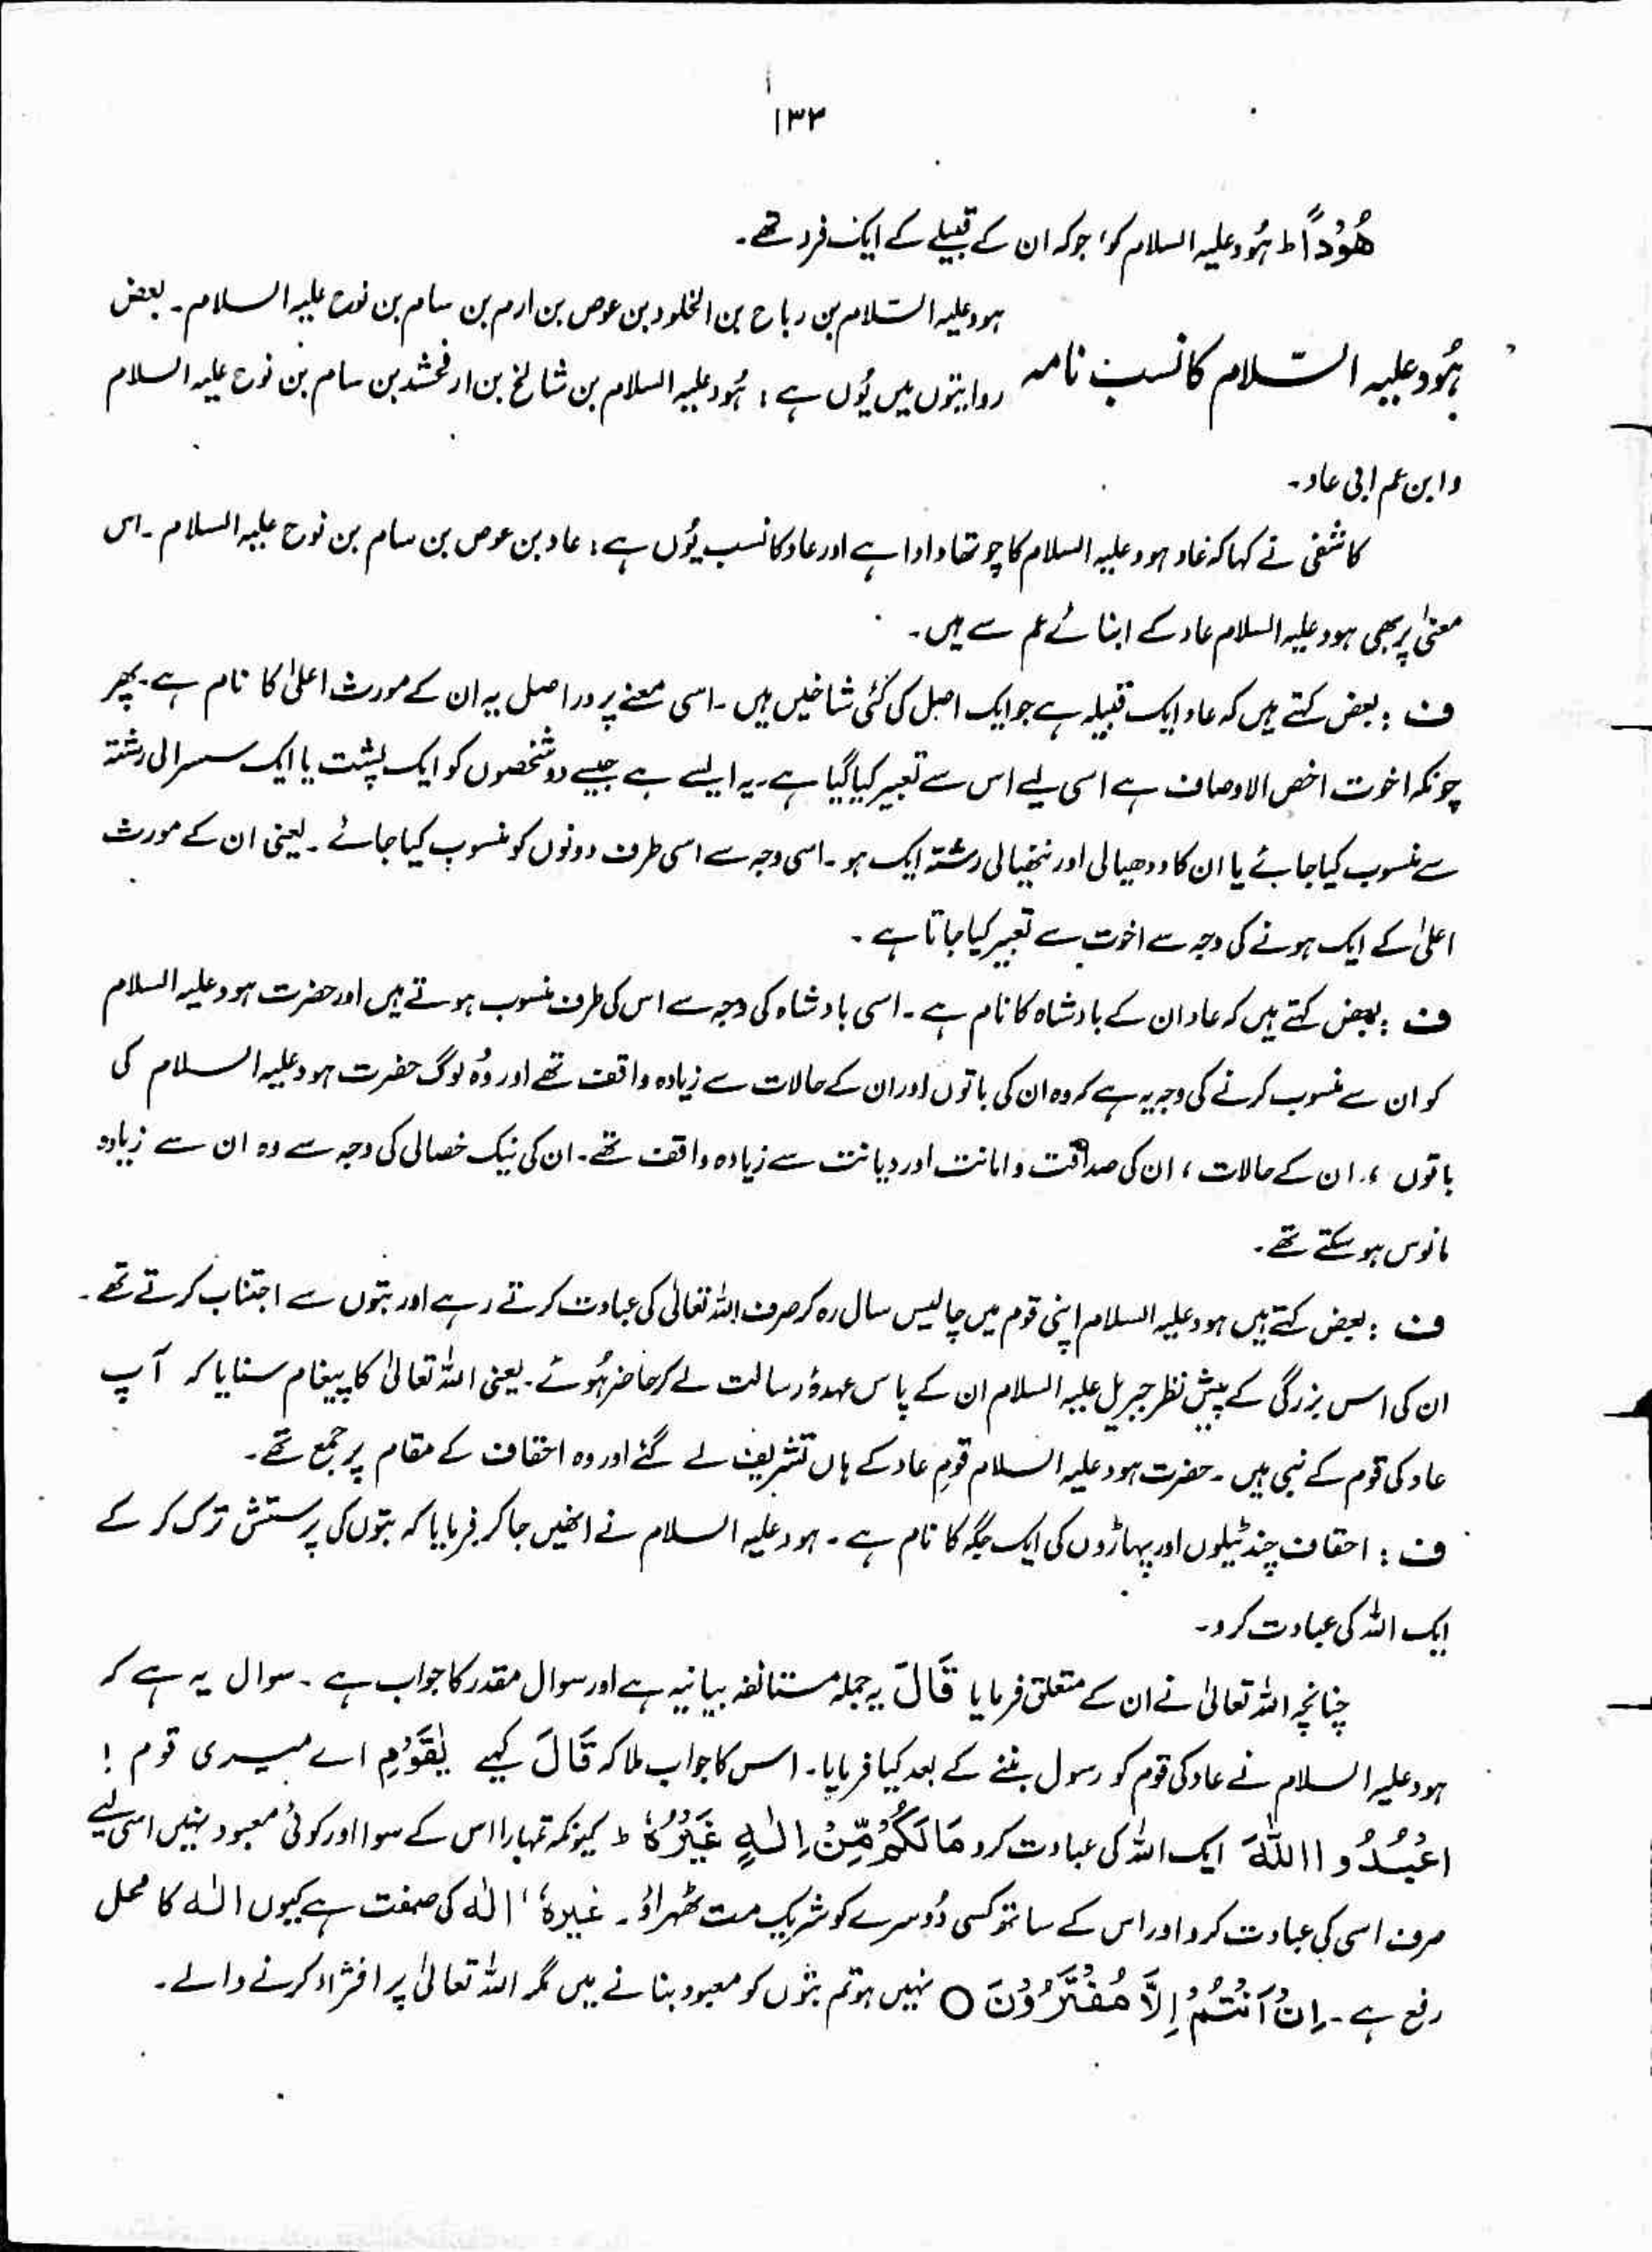 ۱۳۳
هُوْدًا ط ہُود علیہ السلام کو، جو کہ ان کے قبیلے کے ایک فرد تھے۔
ہود علیہ السّلام بن رباح بن الخلود بن عوص بن ارم بن سام بن نوح علیہ السلام۔ بعض
ہُود علیہ السّلام کا نسب نامہ
روایتوں میں یُوں ہے : ہُود علیہ السلام بن شالخ بن ارفخشد بن سام بن نوح علیہ السلام
و ابن عم ابی عاد۔
کاشفی نے کہا کہ عاد ہود علیہ السلام کا چوتھا دادا ہے اور عاد کا نسب یُوں ہے : عاد بن عوص بن سام بن نوح علیہ السلام۔ اس
معنیٰ پر بھی ہود علیہ السلام عاد کے ابنائے عم سے ہیں۔
ف : بعض کہتے ہیں کہ عاد ایک قبیلہ ہے جو ایک اصل کی کئی شاخیں ہیں۔ اسی معنے پر دراصل یہ ان کے مورث اعلیٰ کا نام ہے۔ پھر
چونکہ اخوت اخص الاوصاف ہے اسی لیے اس سے تعبیر کیا گیا ہے۔ یہ ایسے ہے جیسے دو شخصوں کو ایک پشت یا ایک سسرالی رشتہ
سے منسوب کیا جائے یا ان کا ددھیالی اور ننھیالی رشتہ ایک ہو۔ اسی وجہ سے اسی طرف دونوں کو منسوب کیا جائے۔ یعنی ان کے مورث
اعلیٰ کے ایک ہونے کی وجہ سے اخوت سے تعبیر کیا جاتا ہے۔
ف : بعض کہتے ہیں کہ عاد ان کے بادشاہ کا نام ہے۔ اسی بادشاہ کی وجہ سے اس کی طرف منسوب ہوتے ہیں اور حضرت ہود علیہ السلام
کو ان سے منسوب کرنے کی وجہ یہ ہے کہ وہ ان کی باتوں اور ان کے حالات سے زیادہ واقف تھے اور وُہ لوگ حضرت ہود علیہ السلام کی
باتوں ، ان کے حالات ، ان کی صداقت و امانت اور دیانت سے زیادہ واقف تھے۔ ان کی نیک خصالی کی وجہ سے وہ ان سے زیادہ
مانوس ہو سکتے تھے۔
ف : بعض کہتے ہیں ہود علیہ السلام اپنی قوم میں چالیس سال رہ کر صرف اللہ تعالیٰ کی عبادت کرتے رہے اور بتوں سے اجتناب کرتے تھے۔
ان کی اس بزرگی کے پیشِ نظر جبریل علیہ السلام ان کے پاس عہدۂ رسالت لے کر حاضر ہُوئے۔ یعنی اللہ تعالیٰ کا پیغام سنایا کہ آپ
عاد کی قوم کے نبی ہیں۔ حضرت ہود علیہ السلام قومِ عاد کے ہاں تشریف لے گئے اور وہ احقاف کے مقام پر جمع تھے۔
ف : احقاف چند ٹیلوں اور پہاڑوں کی ایک جگہ کا نام ہے۔ ہود علیہ السلام نے انھیں جا کر فرمایا کہ بتوں کی پرستش ترک کر کے
ایک اللہ کی عبادت کرو۔
چنانچہ اللہ تعالیٰ نے ان کے متعلق فرمایا قَالَ یہ جملہ مستانفہ بیانیہ ہے اور سوال مقدر کا جواب ہے۔ سوال یہ ہے کہ
ہود علیہ السلام نے عاد کی قوم کو رسول بننے کے بعد کیا فرمایا۔ اس کا جواب ملا کہ قَالَ کہیے یٰقَوْمِ اے میری قوم !
اعْبُدُوا اللّٰهَ ایک اللہ کی عبادت کرو مَا لَكُمْ مِّنْ اِلٰهٍ غَيْرُهٗ ط کیونکہ تمہارا اس کے سوا اور کوئی معبود نہیں اسی لیے
صرف اسی کی عبادت کرو اور اس کے ساتھ کسی دُوسرے کو شریک مت ٹھہراؤ۔ غیرہٗ ، الٰہ کی صفت ہے کیوں الٰہ کا محل
رفع ہے۔ اِنْ اَنْتُمْ اِلَّا مُفْتَرُوْنَ ○ نہیں ہو تم بتوں کو معبود بنانے میں مگر اللہ تعالیٰ پر افتراء کرنے والے۔